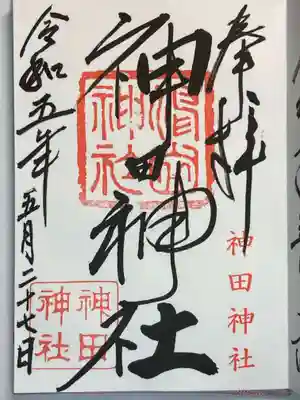 奉拝
神田神社
神田神社
神社
神田神社
令和五年五月二十七日